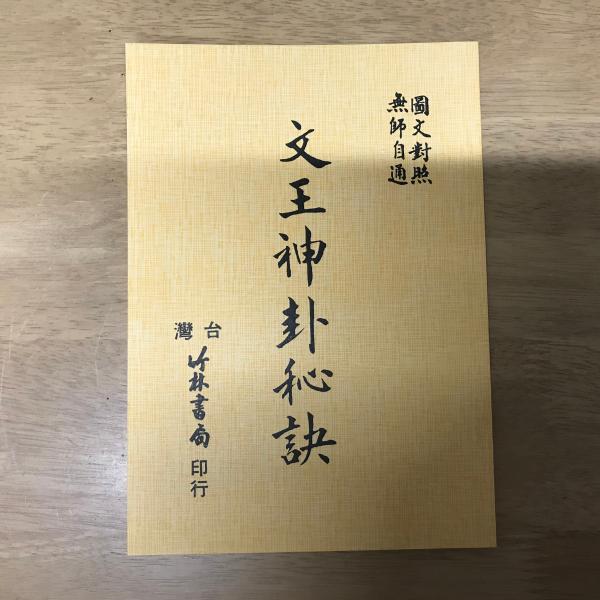 圖文對照
無師自通
文王神卦秘訣
台灣
竹林書局
印行